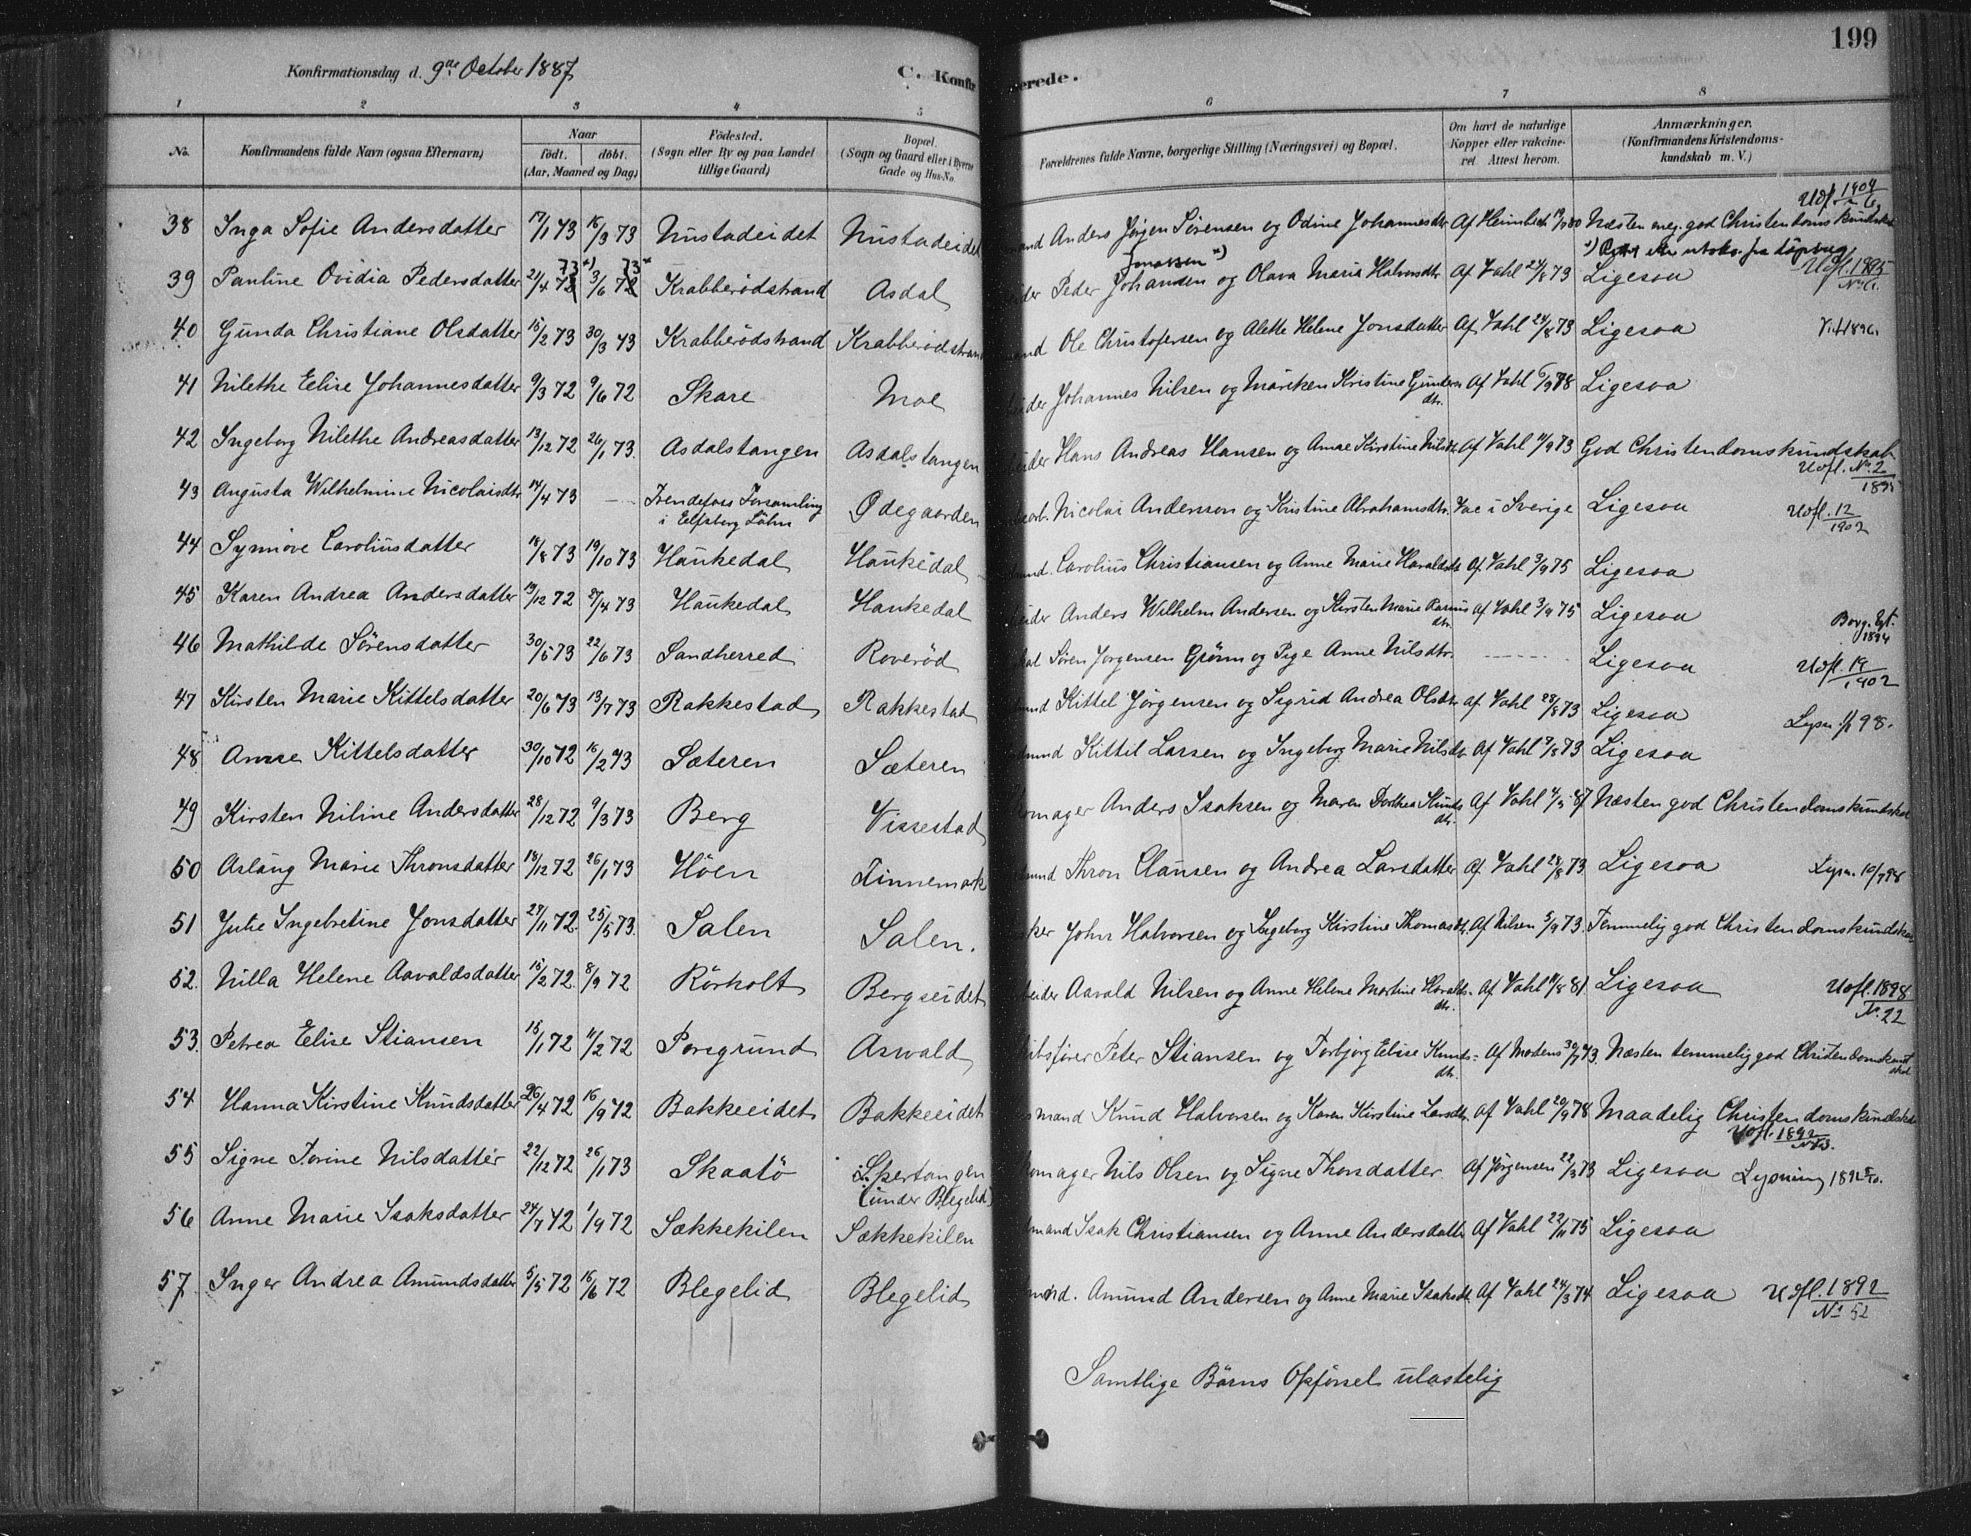 199
Konfirmationsdag d. 9de October 1887
C. Konfir
erede.
1 2 3 4 5 6 7 8
No. Konfirmandens fulde Navn (ogsaa Efternavn) Naar født. døbt. (Aar, Maaned og Dag) Födested. (Sogn eller By og paa Landet tillige Gaard) Bopæl. (Sogn og Gaard eller i Byerne Gade og Hus-No. Forældrenes fulde Navne, borgerlige Stilling (Næringsvei) og Bopæl. Om havt de naturlige Kopper eller vakcineret Attest herom. Anmærkninger. (Konfirmandens Kristendomskundskab m. V.)
Udfl. 1904
38 Inga Sofie Andersdatter 17/1 73 16/3 73 Nustadeidet Nustadeidet mand Anders Jørgen Sørensen og Odine Johannesdtr Af Heimbeck 80 Næsten meg. god Christendomskundskab
Jonassen *)
39 Pauline Ovidia Pedersdatter 21/4 73 *) 3/6 73 * Krabberødstrand Asdal eider Peder Johansen og Olava Maria Halvorsdtr. Af Vahl 24/8 73 Ligesaa Udfl. 1895 No 6.
40 Gunda Christiane Olsdatter 15/2 73 30/3 73 Krabberødstrand Krabberødstran mand Ole Christofersen og Alette Helene Jonsdatter Af Vahl 24/8 73 Ligesaa 1896.
41 Nilethe Eelise Johannesdatter 9/3 72 9/6 72 Skare Moe eider Johannes Nilsen og Mariken Kristine Gunders dtr. Af Vahl 6/9 78 Ligesaa
42 Ingeborg Nilethe Andreasdatter 13/12 72 26/1 73. Asdalstangen Asdalstangen eider Hans Andreas Hansen og Anne Kirstine Nilsdtr Af Vahl 11/9 73 God Christendomskundskab
Udfl. No. 2 1895
43 Augusta Wilhelmine Nicolaisdtr 14/4 73 — Trendefoss Forsamling i Elfsborg Löhn Ødegaarden arb. Nicolai Andersson og Kristine Abrahamsdtr. Vac i Sverige Ligesaa Udfl. 12 1902
44 Synnøve Caroliusdatter 18/8 73 19/10 73 Haukedal Haukedal mand. Carolius Christiansen og Anne Marie Haraldsdtr Af Vahl 3/9 75 Ligesaa
45 Karen Andrea Andersdatter 19/12 72 27/4 73 Haukedal Haukedal eider Anders Wilhelm Andersen og Kirsten Marie Rasmus dtr. Af Vahl 3/9 75 Ligesaa
46 Mathilde Sørensdatter 30/5 73 22/6 73 Sandherred Roverød Søren Jørgensen Grönn og Pige Anne Nilsdtr. ------- Ligesaa 1894 Udfl. 19 1902
47 Kirsten Marie Kittelsdatter 20/6 73 13/7 73 Rakkestad Rakkestad mand Kittel Jørgensen og Sigrid Andrea Olsdtr Af Vahl 28/8 73 Ligesaa Lysn. 98.
48 Anne Kittelsdatter 30/10 72 16/2 73 Sæteren Sæteren mand Kittil Larsen og Ingeborg Marie Nilsdtr Af Vahl 9/8 73 Ligesaa
49 Kirsten Niline Andersdatter 28/12 72 9/3 73 Berg Vissestad omager Anders Isaksen og Maren Dorthea Knuds dtr. Af Vahl 87 Næsten god Christendomskundskab
50 Aslaug Marie Thronsdatter 18/12 72 26/1 73 Höen Finnemark mand Thron Clausen og Andrea Larsdatter Af Vahl 28/8 73 Ligesaa Lysn. 10/7 98
51 Julie Ingebretine Jonsdatter 27/11 72. 25/5 73. Salen Salen. sker John Halvorsen og Ingeborg Kirstine Thomasdtr. Af Nilsen 5/9 73. Temmelig god Christendomskundskab
52. Nilla Helene Aavaldsdatter 15/2 72. 8/9 72 Rörholt Bergseidet beider Aavald Nilsen og Anne Helene Martine Haralds dtr. Af Vahl 11/8 81. Ligesaa Udfl. 1898 N. 22
53. Petrea Elise Stiansen 15/1 72 11/2 72 Porsgrund Aswald kibsfører Peter Stiansen og Torbjørg Elise Knuds dtr. Af Mortens 73 Næsten temmelig god Christendomskundskab
54 Hanna Kirstine Knudsdatter 26/4 72 16/9 72 Bakkeeidet Bakkeeidet smand Knud Halvorsen og Karen Kirstine Larsdtr. Af Vahl 20/9 78 Maadelig Christendomskundskab
55 Signe Torine Nilsdatter 22/12 72 26/1 73 Skaatö Spertangen (under Blegelid) omager Nils Olsen og Signe Thorsdatter Af Jørgensen 22/3 73 Ligesaa Udfl. 1892 Lysning
56 Anne Marie Isaksdatter 24/7 72 1/9 72 Sækkekilen Sækkekilen mand Isak Christiansen og Anne Andersdatter Af Vahl 22/11 75 Ligesaa
57. Inger Andrea Amundsdatter 5/5 72 16/6 72 Blegelid Blegelid mand. Amund Andersen og Anne Marie Isaksdtr. Af Vahl 24/3 74 Ligesaa Udfl. 1892 No 52
Samtlige Børns Opførsel ulastelig